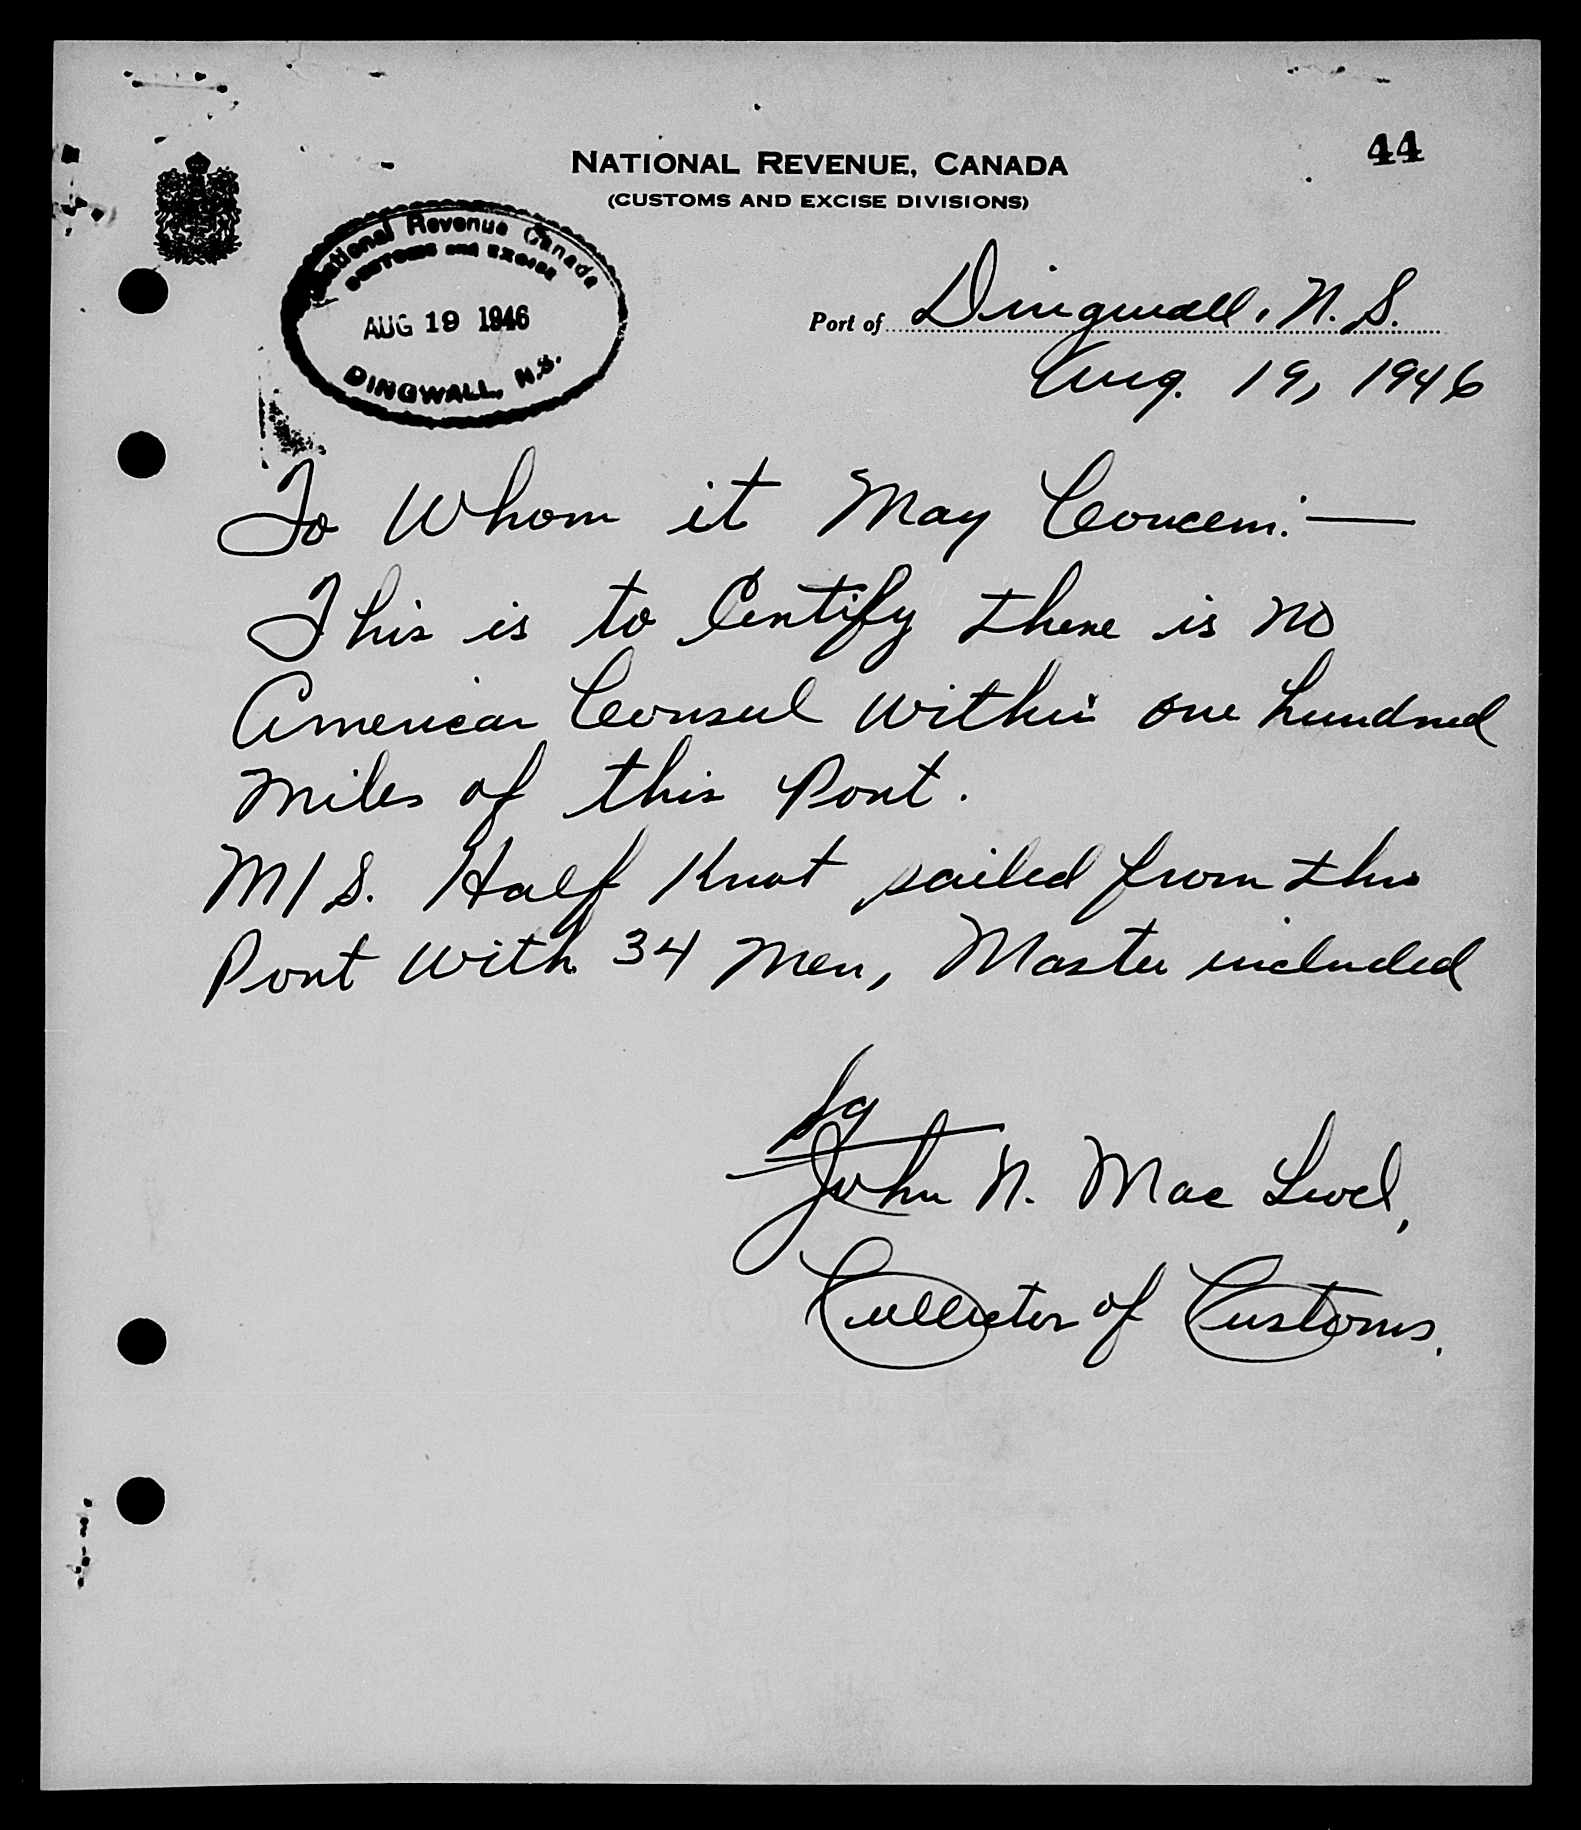 44
NATIONAL REVENUE, CANADA
(CUSTOMS AND EXCISE DIVISIONS)
National Revenue Canada
CUSTOMS and EXCISE
AUG 19 1946
DINGWALL, N.S.
Port of Dingwall, N.S.
Aug. 19, 1946
To Whom it May Concern:—
This is to Certify there is no
American Consul within one hundred
miles of this Port.
M/S. Half Knot sailed from this
Port with 34 men, Master included
sg
John N. Mac Leod,
Collector of Customs.